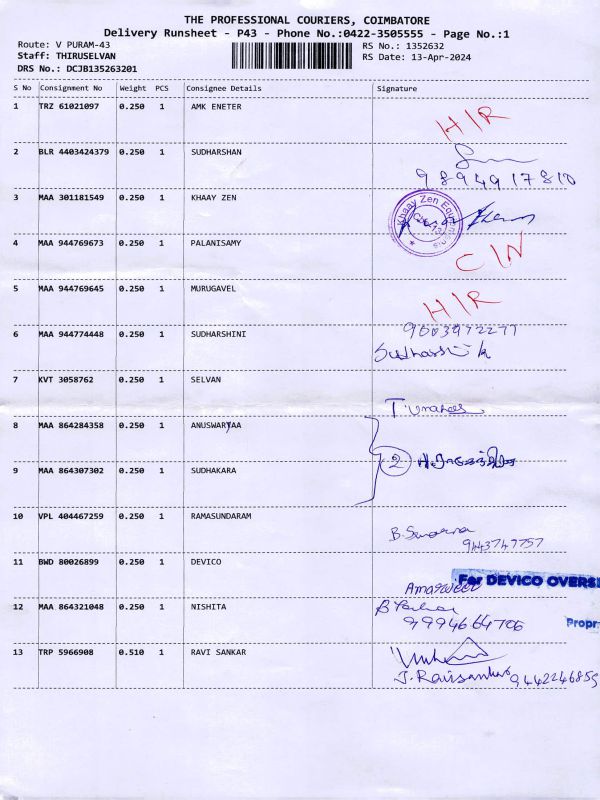 THE PROFESSIONAL COURIERS, COIMBATORE
Delivery Runsheet - P43 - Phone No.:0422-3505555 - Page No.:1
Route: V PURAM-43 RS No.: 1352632
Staff: THIRUSELVAN RS Date: 13-Apr-2024
DRS No.: DCJB135263201
S No Consignment No Weight PCS Consignee Details Signature
1 TRZ 61021097 0.250 1 AMK ENETER
H/R
2 BLR 4403424379 0.250 1 SUDHARSHAN
9894917810
3 MAA 301181549 0.250 1 KHAAY ZEN
Khaay Zen
4 MAA 944769673 0.250 1 PALANISAMY
C/N
5 MAA 944769645 0.250 1 MURUGAVEL
H/R
6 MAA 944774448 0.250 1 SUDHARSHINI
9003972277
Sudharshi k
7 KVT 3058762 0.250 1 SELVAN
8 MAA 864284358 0.250 1 ANUSWARYAA
2
9 MAA 864307302 0.250 1 SUDHAKARA
10 VPL 404467259 0.250 1 RAMASUNDARAM
9443747757
11 BWD 80026899 0.250 1 DEVICO
For DEVICO OVERS
12 MAA 864321048 0.250 1 NISHITA
9994664706
Propr
13 TRP 5966908 0.510 1 RAVI SANKAR
J. Ravisankar 9442246859